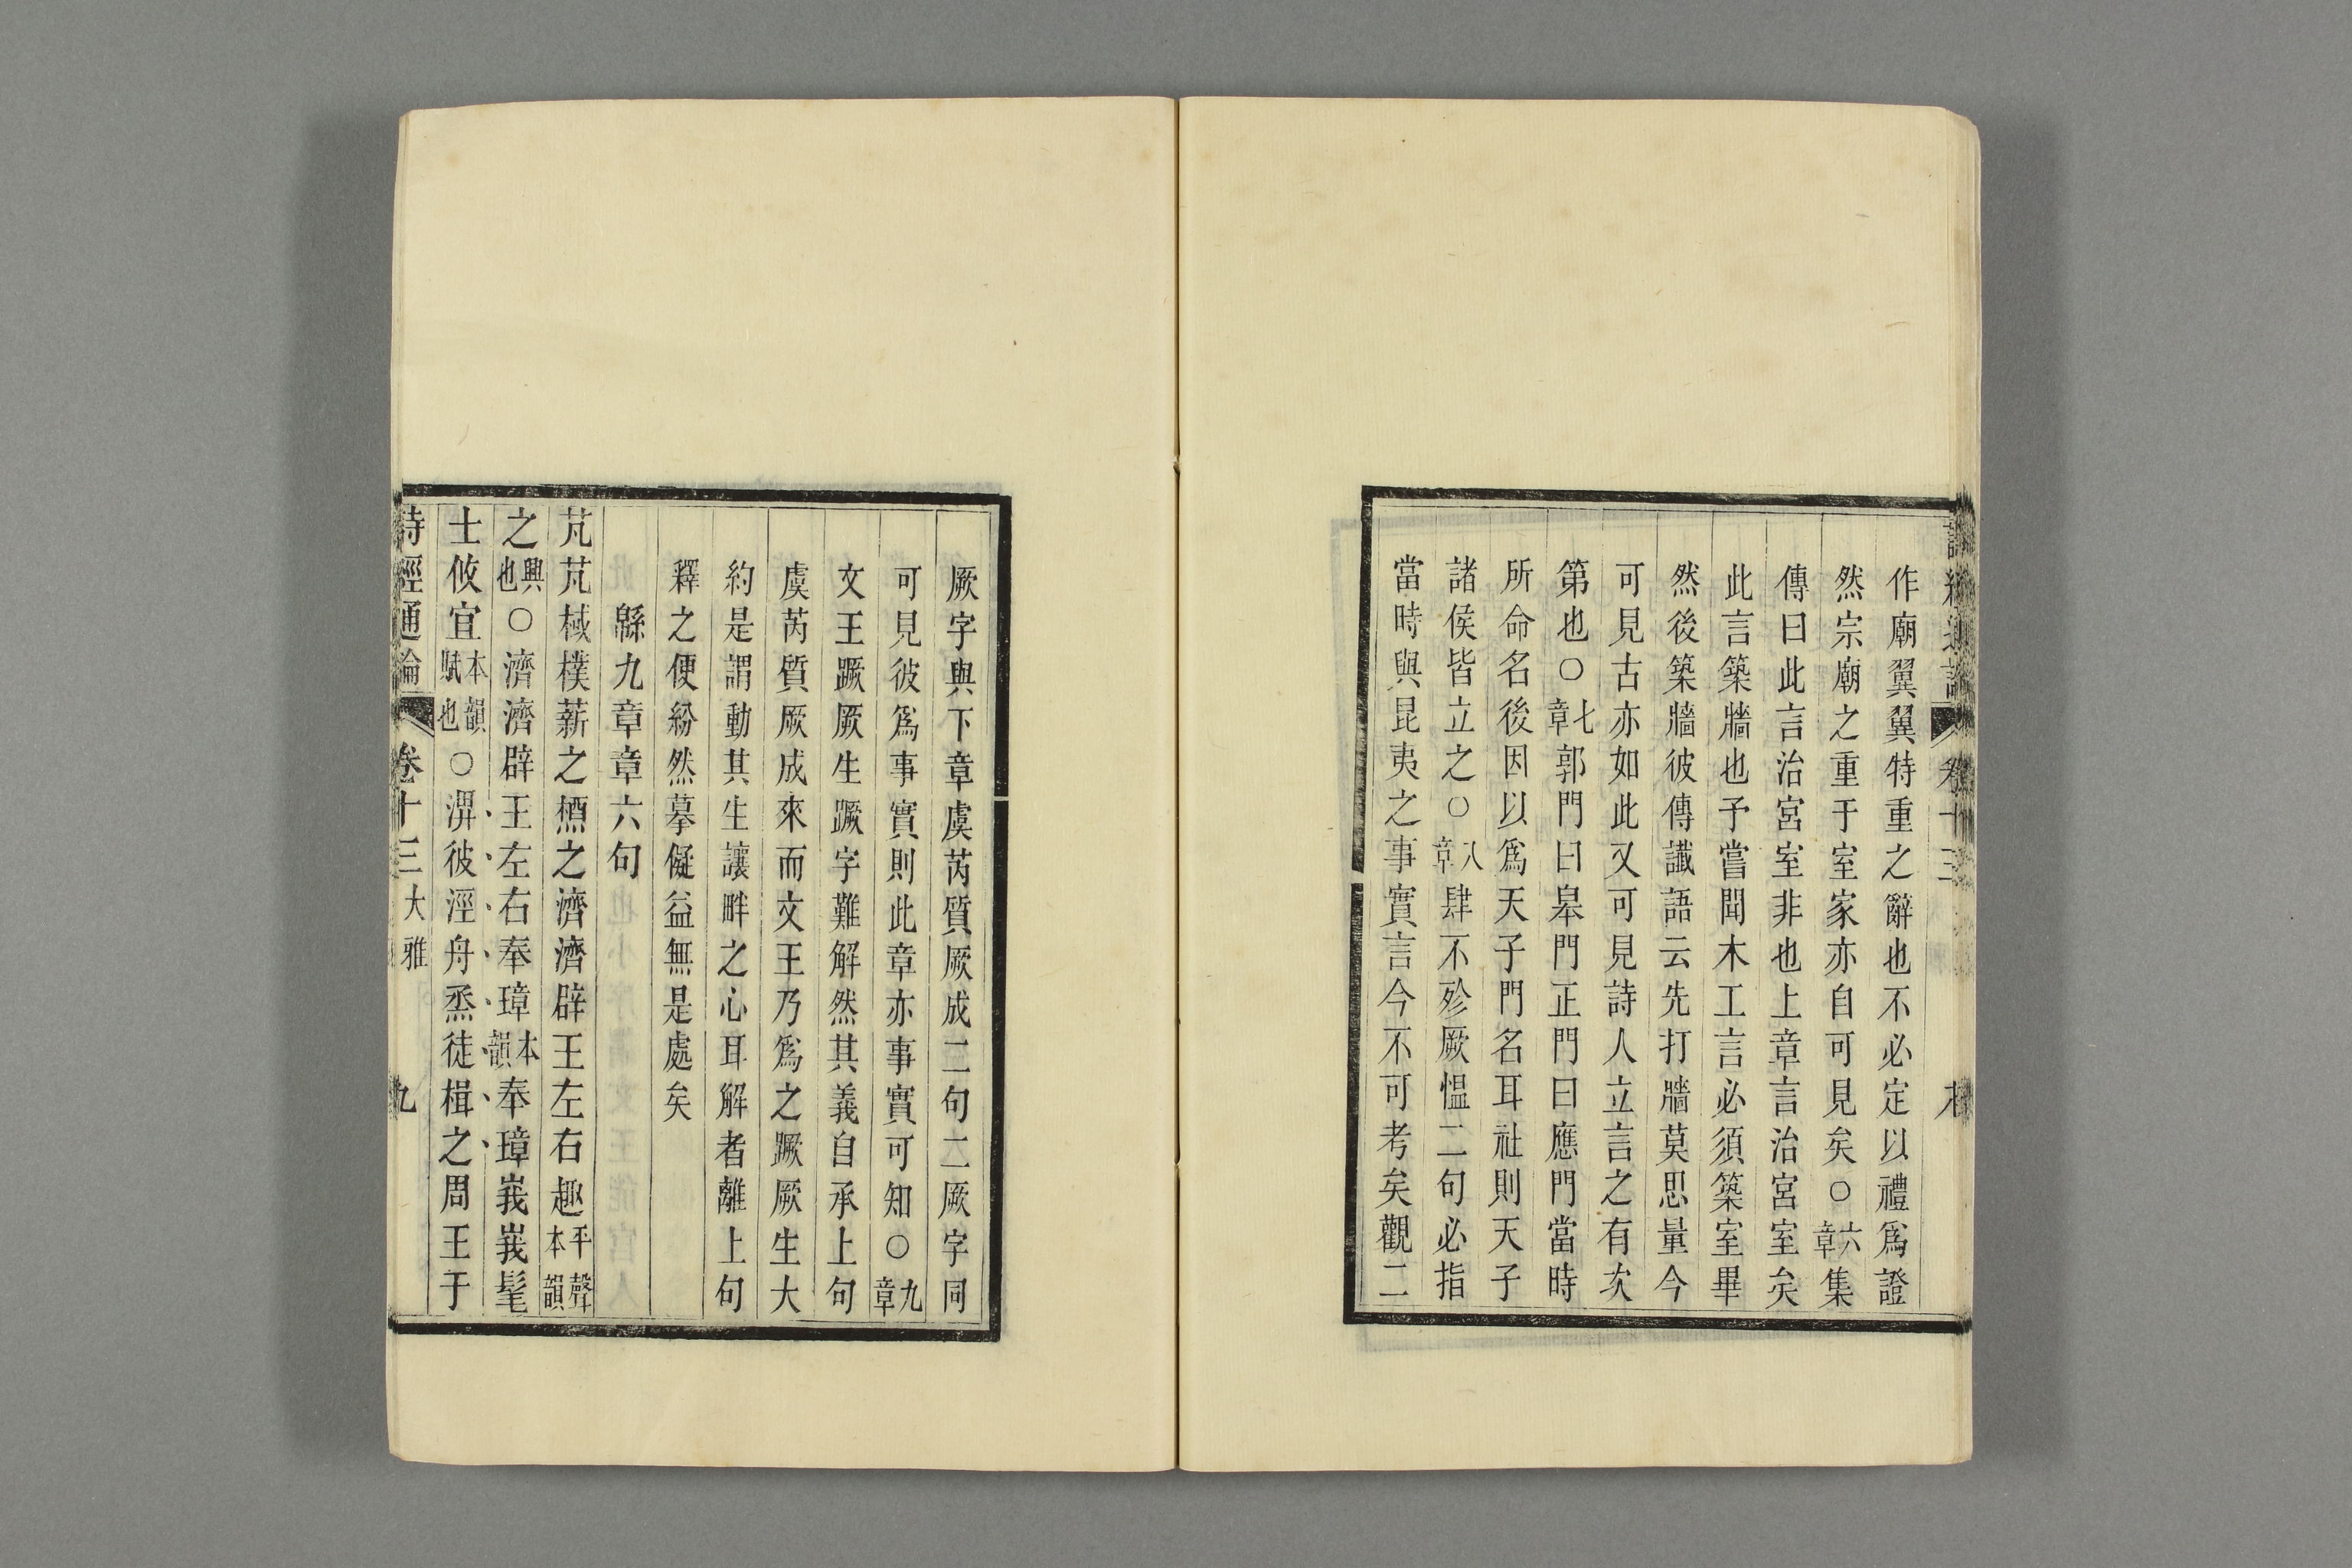 作廟翼翼特重之辭也不必定以禮爲證
然宗廟之重于室家亦自可見矣○六章集
傳曰此言治宮室非也上章言治宮室矣
此言築牆也予嘗聞木工言必須築室畢
然後築牆彼傳讖語云先打牆莫思量今
可見古亦如此又可見詩人立言之有次
第也○七章郭門曰皋門正門曰應門當時
所命名後因以爲天子門名耳社則天子
諸侯皆立之○八章肆不殄厥愠二句必指
當時與昆夷之事實言今不可考矣觀二
厥字與下章虞芮質厥成二句二厥字同
可見彼爲事實則此章亦事實可知○九章
文王蹶厥生蹶字難解然其義自承上句
虞芮質厥成來而文王乃爲之蹶厥生大
約是謂動其生讓畔之心耳解者離上句
釋之便紛然摹儗益無是處矣
緜九章章六句
芃芃棫樸薪之槱之濟濟辟王左右趣平聲本韻
之興也○濟濟辟王左右奉璋本韻奉璋峩峩髦
士攸宜本韻賦也○淠彼涇舟烝徒楫之周王于
詩經通論 卷十三 大雅 九